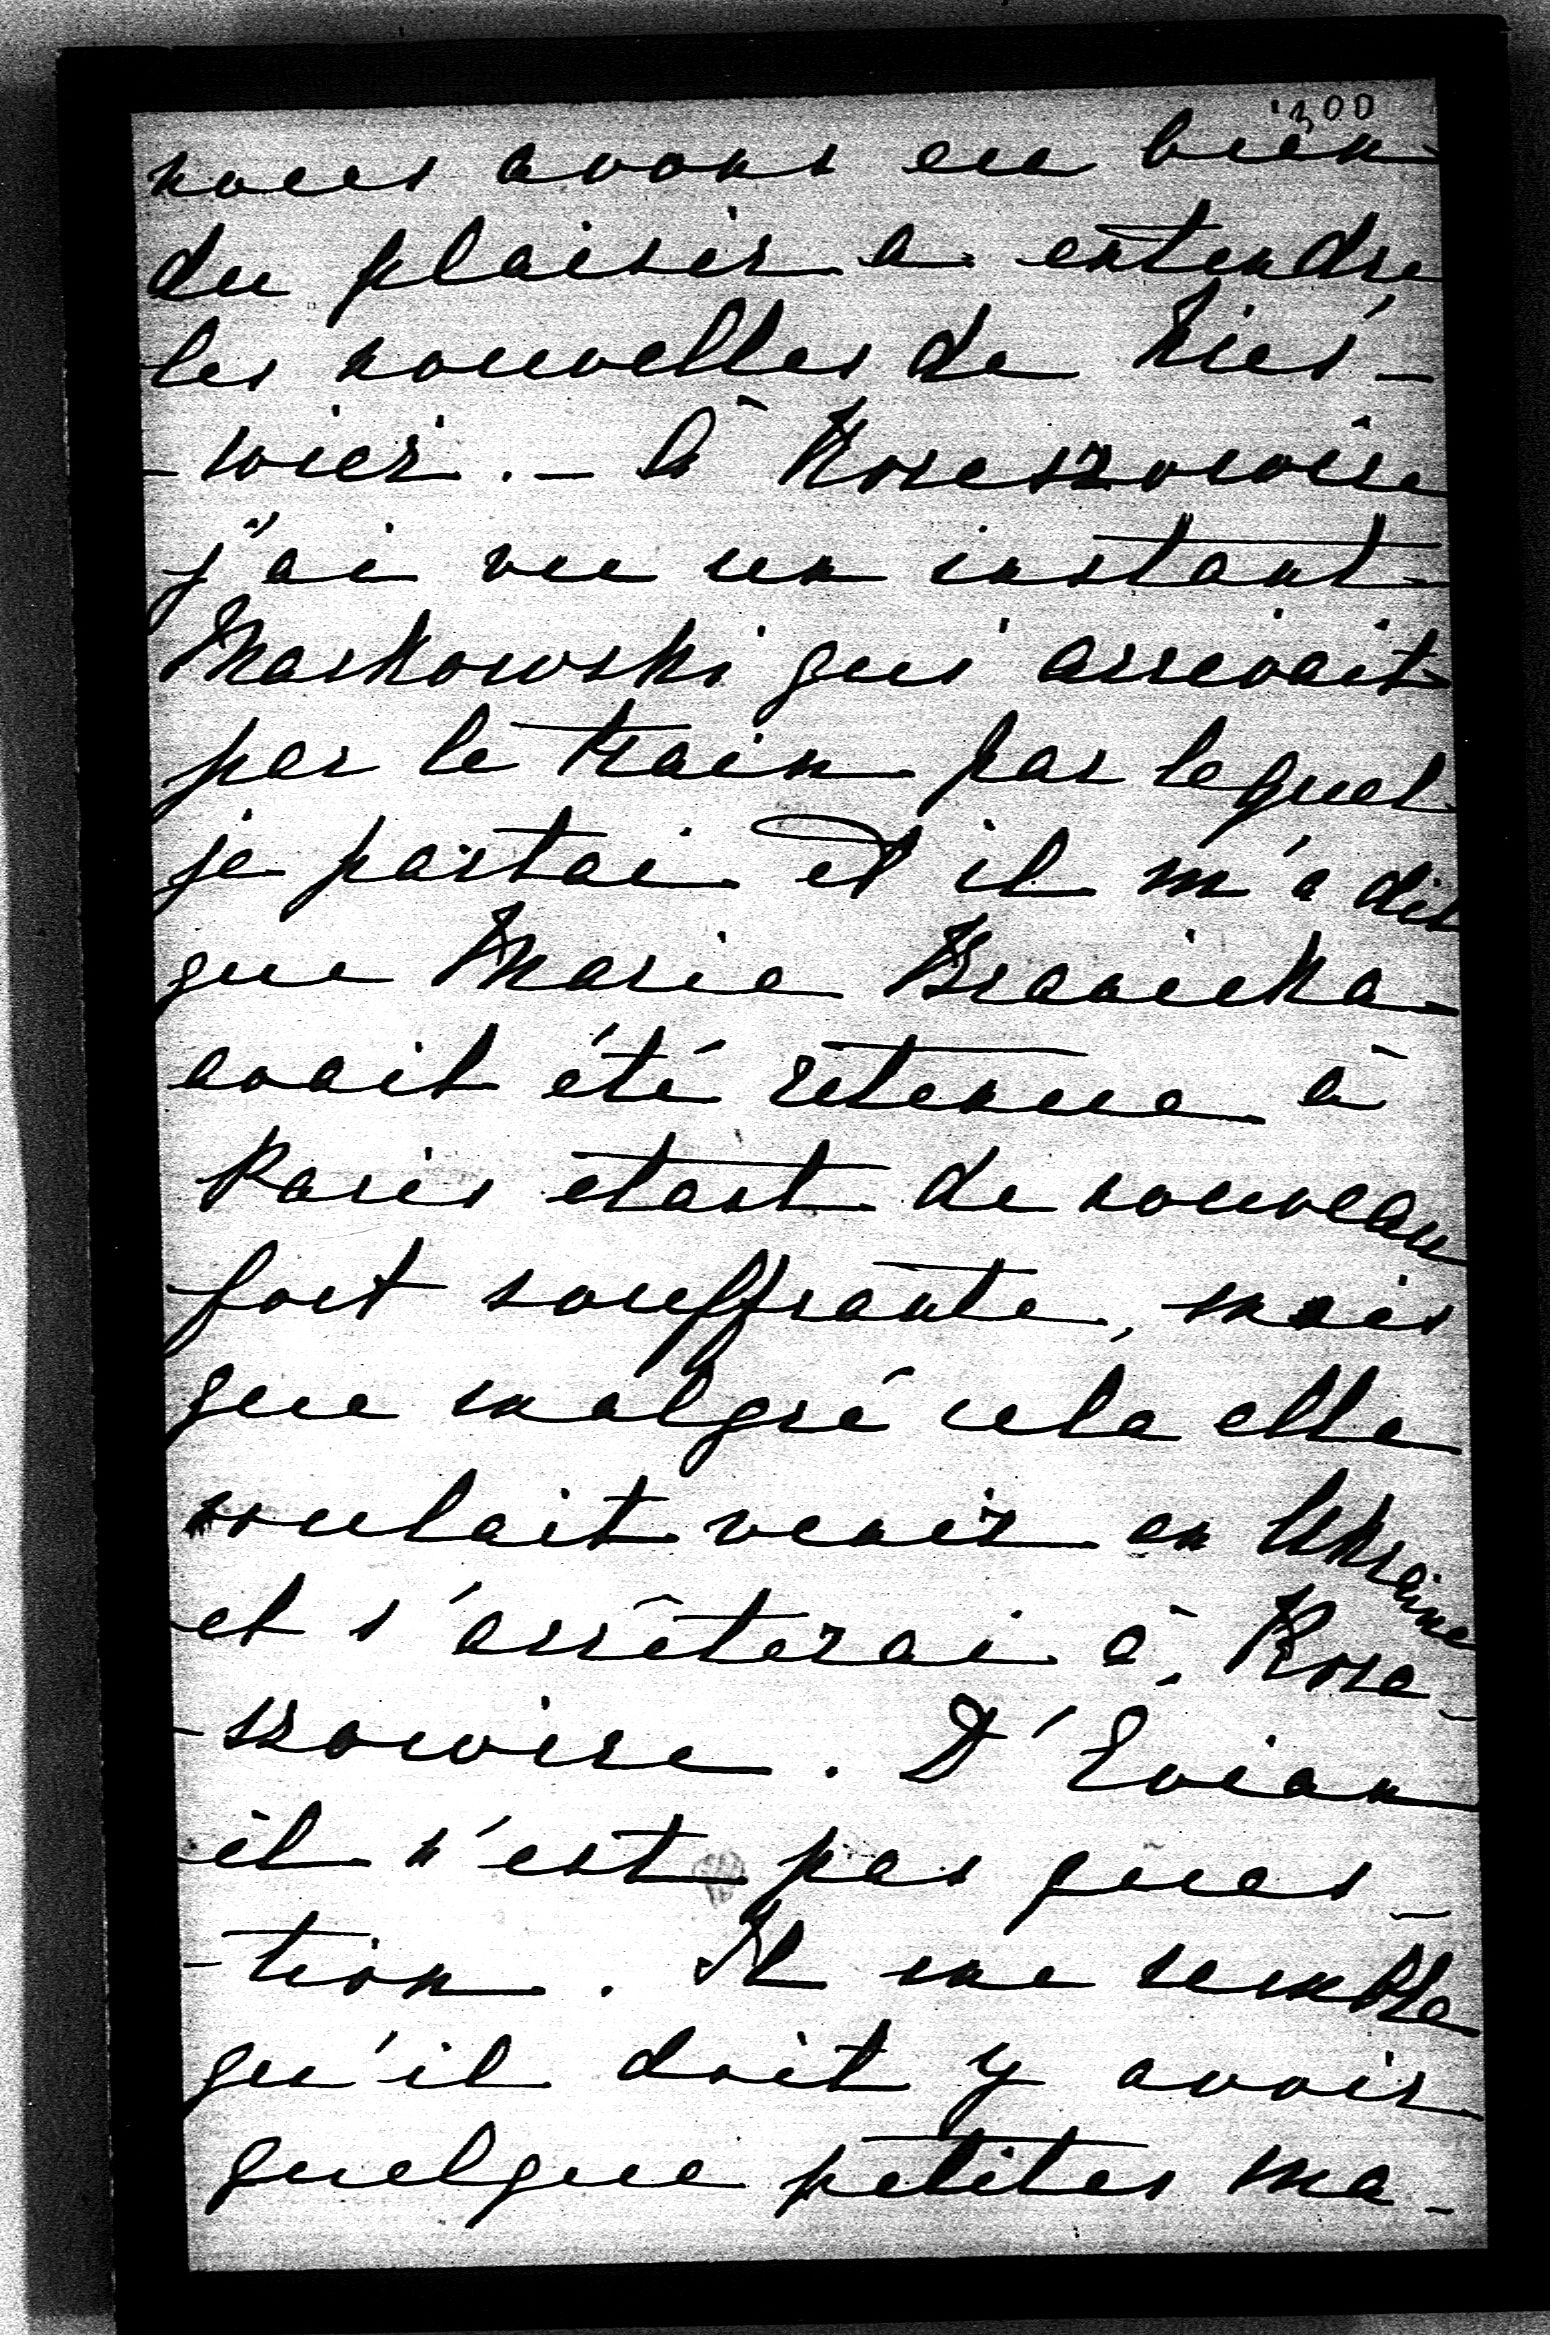 300
nous avons eu bien
du plaisir a entendre
les nouvelles de Nies-
-wiez. - à Koreszowize
j'ai vu un instant
Markowski qui arrivait
par le train par lequel
je partai et il m'a dit
que Marie Branicka
avait été retenue à
Paris étant de nouveau
fort souffrante, mais
que malgré cela elle
voulait venir en Ukraine
et s'arrêterai à Kore-
-szowize. D'Evian
il n'est pas ques-
-tion. Il me semble
qu'il doit y avoir
quelque petites ma-